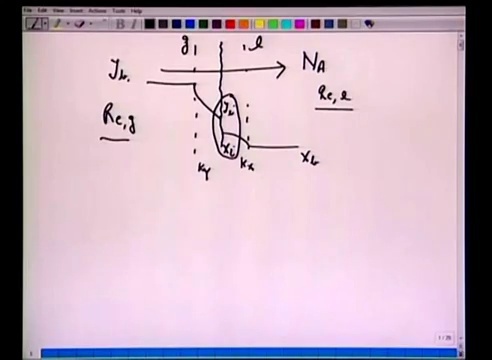 File Edit View Insert Actions Tools Help
g, , l
y_b N_A
Re,g Re,l
y_i
x_i x_b
k_y k_x